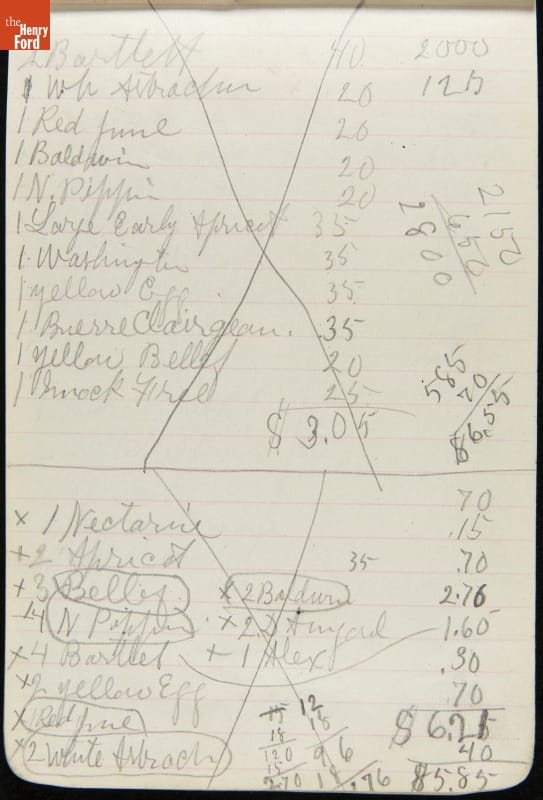 the Henry Ford
2 Bartlett 40 2000
1 Wh Astrachan 20 125
1 Red June 20
1 Baldwin 20
1 N. Pippin 20
2150
650
2800
1 Large Early Apricot 35
1 Washington 35
1 yellow Egg 35
1 Buerre Clairgeau. 35
1 yellow Bellef 20
585
70
$6.55
1 Smock Free 25
$ 3.05
70
x 1 Nectarine .15
x 2 Apricot 35 .70
x 3 Bellef x 2 Baldwin 2.76
x 4 N Pippin x 2 D Angoul 1.60
x 4 Bartlet x 1 Alex .30
x 2 yellow Egg 70
x 1 Red June 12 $ 6.25
18
120 96
x 2 White Astrach 40
2.70 $5.85